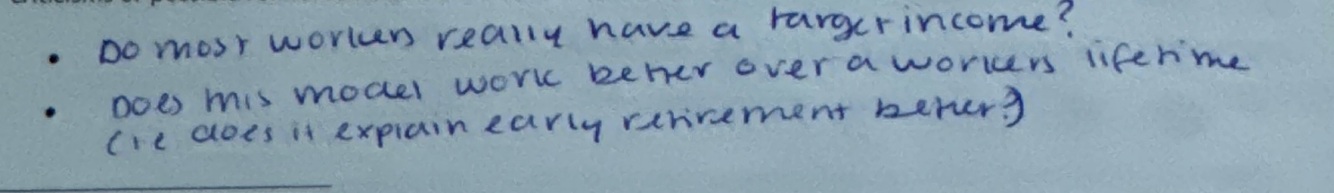 • Do most workers really have a target income?
• Does this model work better over a workers lifetime
(ie does it explain early retirement better?)